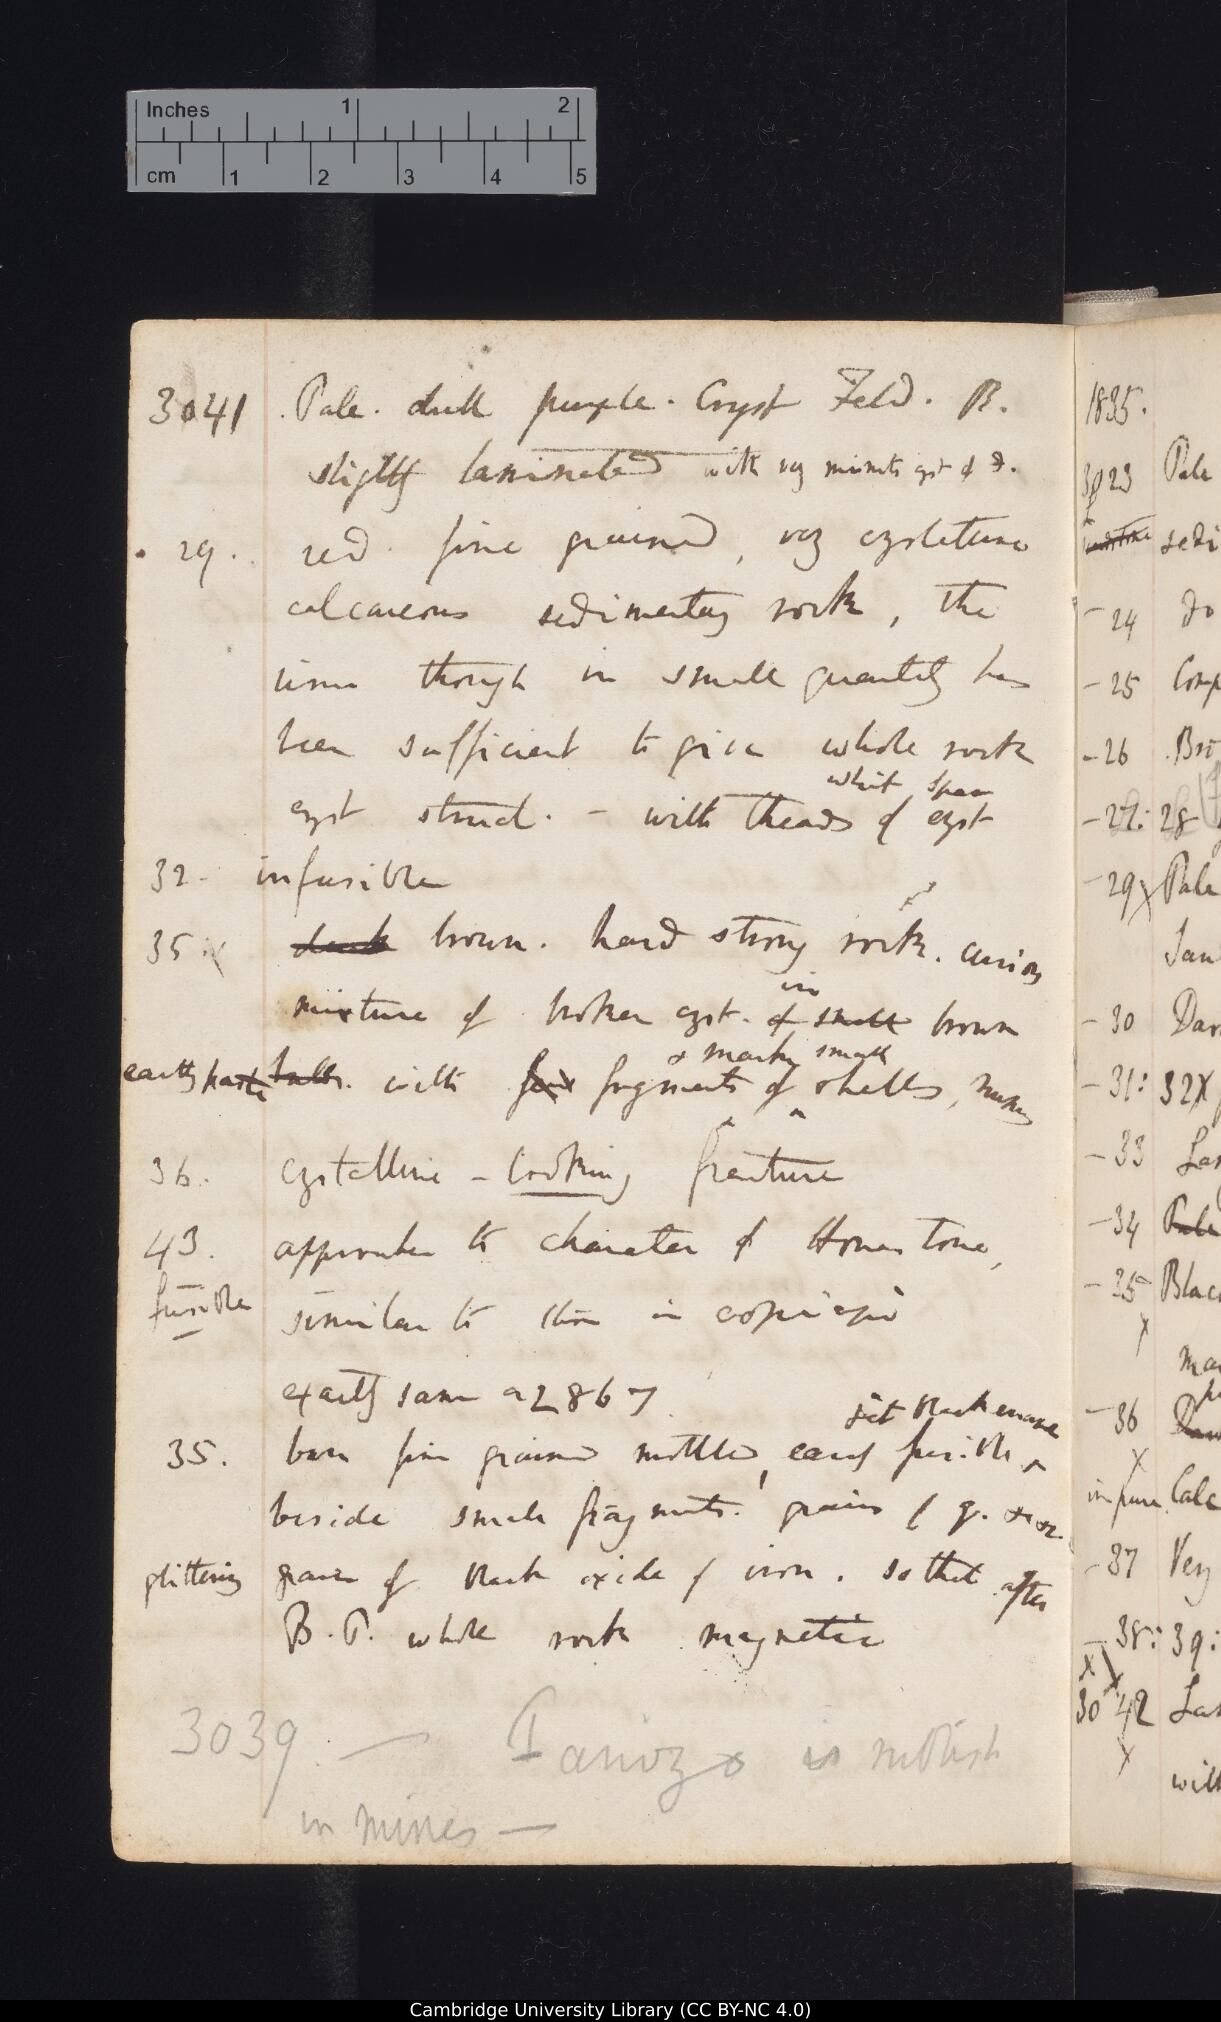 Inches 1 2
cm 1 2 3 4 5
3041 Pale. dull purple. Cryst Feld. R.
slightly laminated with very minute cryst of F.
29. red. fine grained, very crystalline
calcareous sedimentary rock, the
iron though in small quantity has
been sufficient to give whole rock
white spar
cryst struct. – with threads of cryst
32. infusible
35 x dark brown. hard strong rock. curious
in
mixture of broken cryst. of small brown
& marks small
earthy paste balls. with few fragments of shells, many
36. crystalline – looking fracture
43. approaches to character of Hornstone,
fusible similar to this in Copiapò
exactly same as 2867
jet black enamel
35. bare fine grained mottled, easily fusible
beside small fragments. grains of q.
glittering grains of black oxide of iron. so that after
B.P. whole rock magnetic
3039 — Panizo is mottish
in mines —
1835.
3023 Pale
sedi
– 24 do
– 25 Comp
– 26 Bro
– 27: 28
– 29 x Pale
Jas
– 30 Dar
– 31: 32 x
– 33 Las
– 34 Pale
– 35 Blac
x
ma
– 36
x
impure Calc
– 37 Very
– 38: 39:
x x
30 42 Las
x
with
Cambridge University Library (CC BY-NC 4.0)